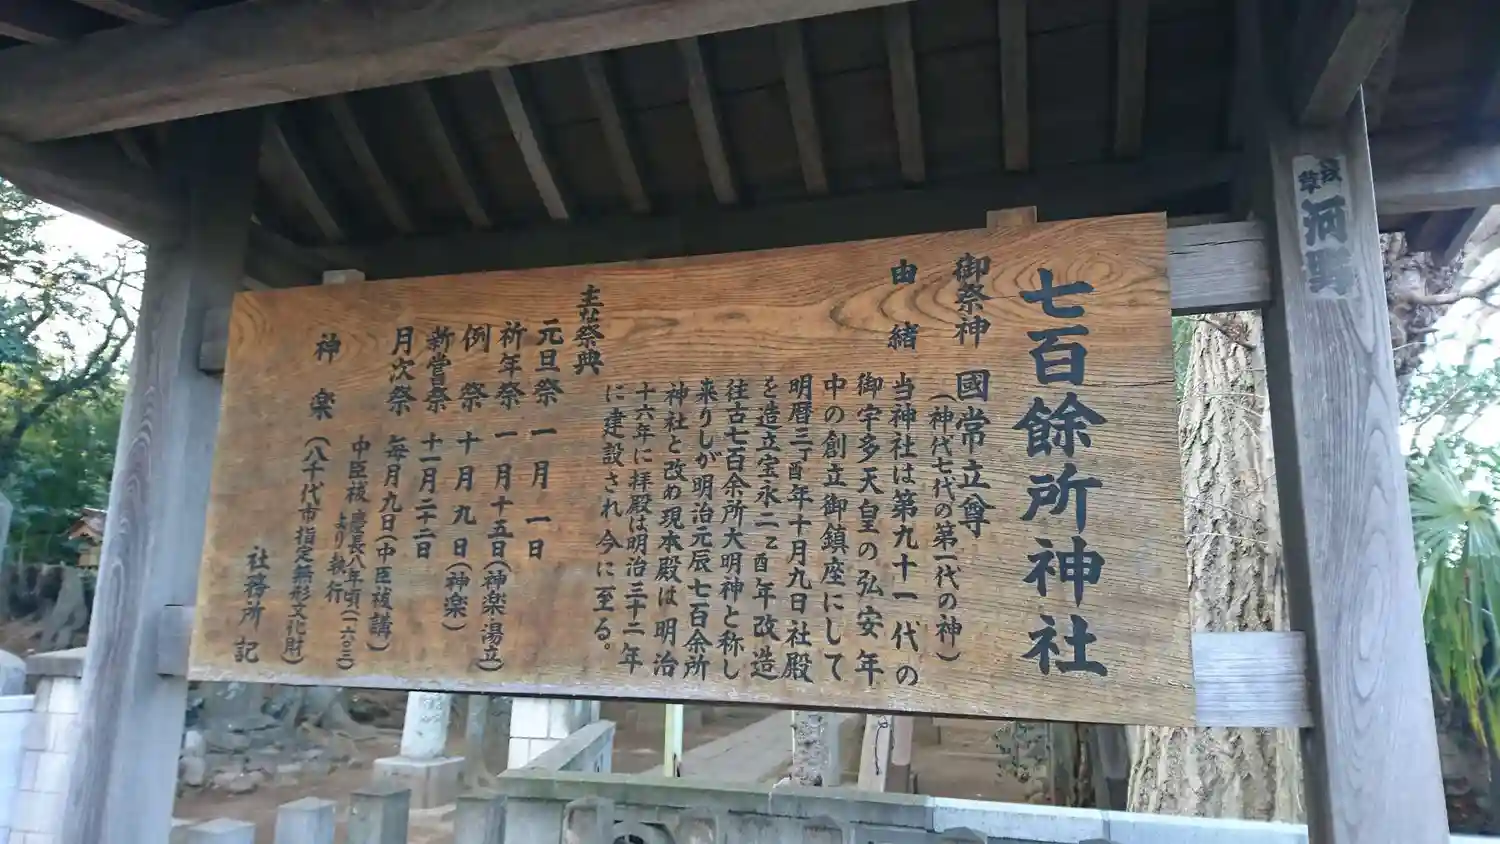 七百餘所神社
御祭神 國常立尊
(神代七代の第一代の神)
由緒 当神社は第九十一代の
御宇多天皇の弘安年
中の創立御鎮座にして
明暦三丁酉年十月九日社殿
を造立宝永二乙酉年改造
往古七百余所大明神と称し
来りしが明治元辰七百余所
神社と改め現本殿は明治
十六年に拝殿は明治三十二年
に建設され今に至る。
主な祭典
元旦祭 一月一日
祈年祭 一月十五日(神楽湯立)
例祭 十月九日(神楽)
新嘗祭 十一月二十二日
月次祭 毎月九日(中臣祓講)
中臣祓 慶長八年頃(一六〇三)
より執行
神楽 (八千代市指定無形文化財)
社務所記
浅草
河野